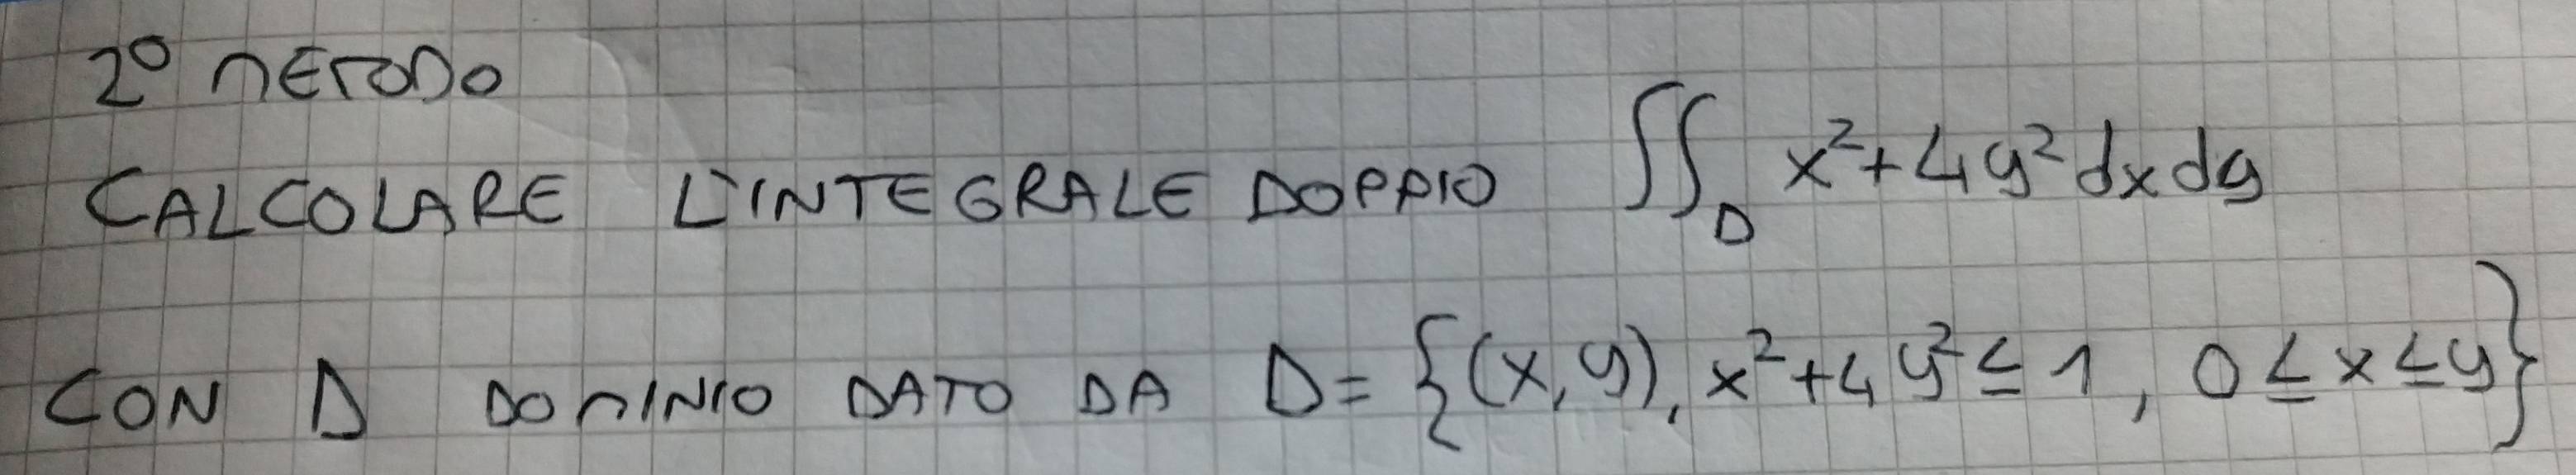 2° METODO
CALCOLARE L'INTEGRALE DOPPIO ∬_D x²+4y² dx dy
CON D DOMINIO DATO DA D={(x,y), x²+4y²≤1, 0≤x≤y}